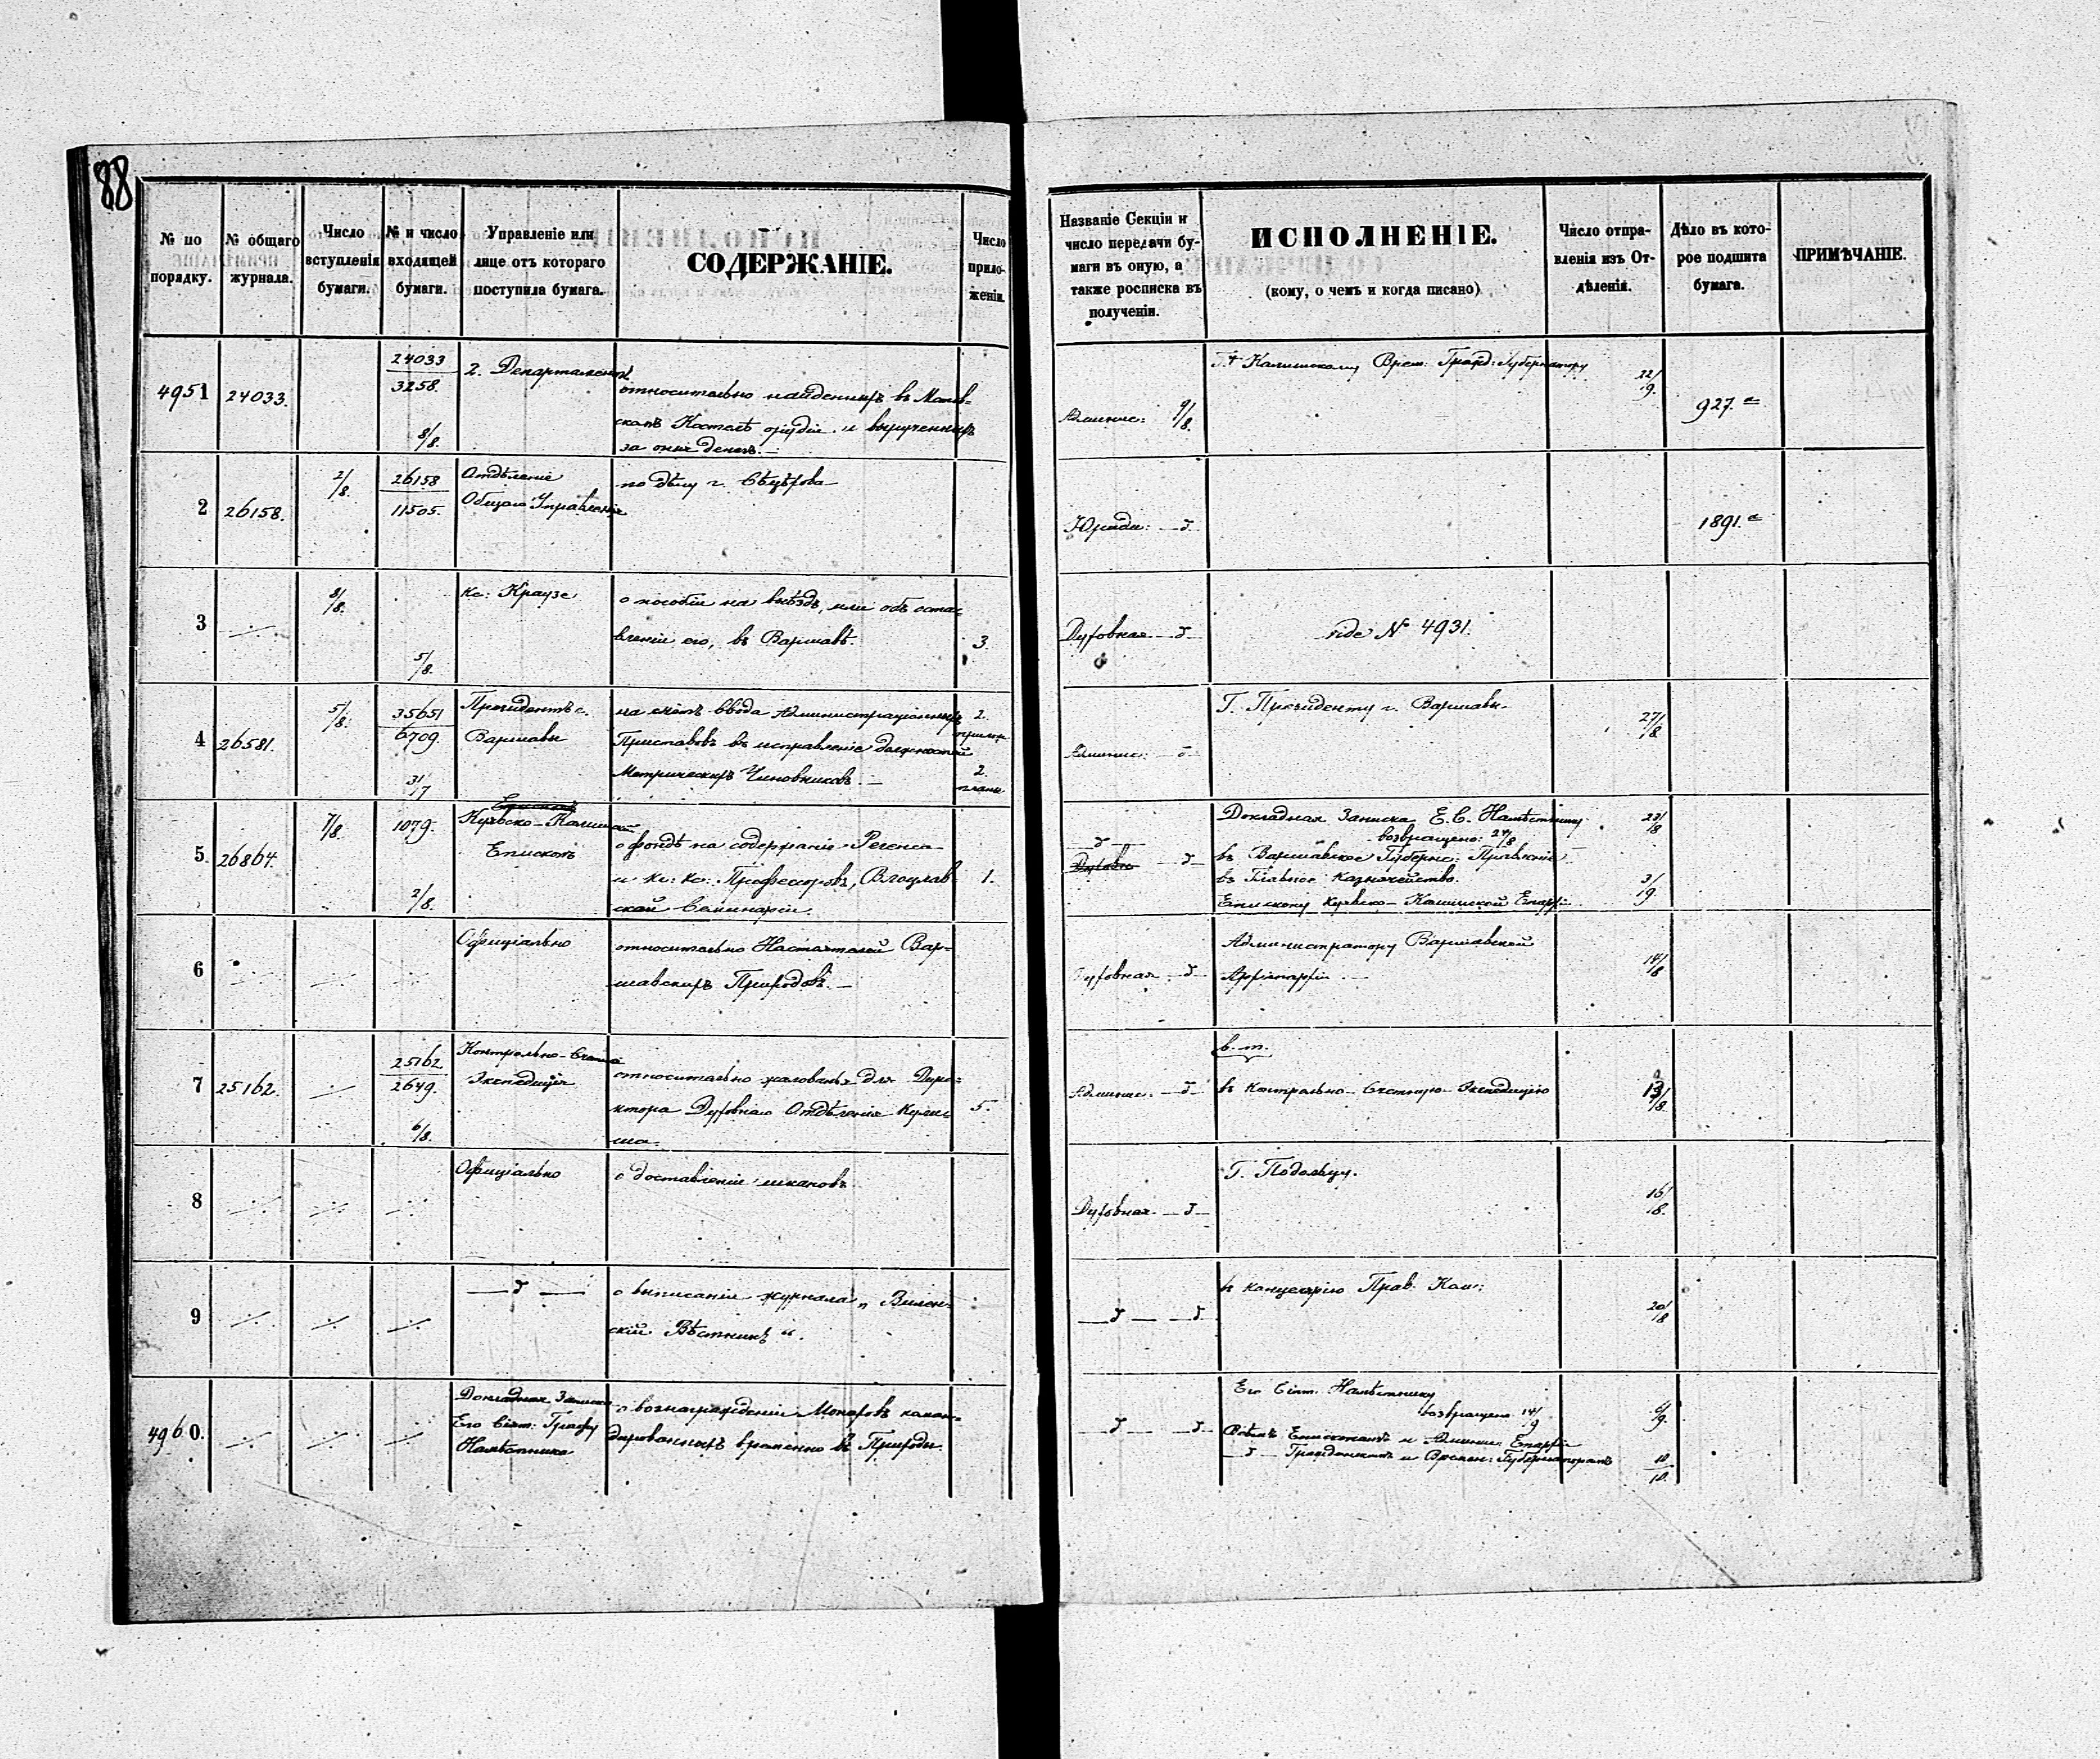 88
№ по порядку.
№ общаго журнала.
Число вступленія бумаги.
№ и число входящей бумаги.
Управленіе или лице отъ котораго поступила бумага.
СОДЕРЖАНІЕ.
Число приложеній.
Названіе Секціи и число передачи бумаги въ оную, а также росписка въ полученіи.
ИСПОЛНЕНІЕ.
(кому, о чемъ и когда писано)
Число отправленія изъ Отдѣленія.
Дѣло въ которое подшита бумага.
ПРИМѢЧАНІЕ.
4951
24033.
24033
3258.
8/8.
2. Департаментъ
относительно найденныхъ въ
скомъ Костелѣ орудій и вырученныхъ
за оныя денегъ. —
9/8.
Калишскому Врем: Гражд: Губернатору
22/9.
927. а
2
26158.
2/8.
26158
11505.
Отдѣленіе
Общаго Управленія
по дѣлу г.
Юриди: — d
1891. а
3
8/8.
5/8.
Кс: Краузе
о пособіи на выѣздъ, или объ оста-
вленіи его, въ Варшавѣ.
3
Духовная — d
vide № 4931.
4
26581.
5/8.
35651
6709.
31/7
Президентъ г.
Варшавы
на счетъ ввода Администраціонныхъ
Приставовъ въ исправленіе должностей
Метрическихъ Чиновниковъ. —
2.
2.
Админис: — d
Г. Президенту г. Варшавы
27/8.
5.
26864.
7/8.
1079.
2/8.
Куявско-Калишскій
Епископъ
о фондѣ на содержаніе Регенса
и Кс: Кс: Профессоровъ, Влоцлав-
ской Семинаріи.
1.
d
Духовн — d
Докладная Записка Е. С. Намѣстнику
возвращено: 24/8
въ Варшавское Губернс: Правленіе
въ Главное Казначейство.
Епископу Куявско-Калишской Епархіи
23/8
3/9.
6
Официціально
относительно Настоятелей Вар-
шавскихъ Приходовъ. —
Духовная — d
Администратору Варшавской
Архіепархіи —
14/8
7
25162.
25162
2649.
6/8.
Контрольно-Счетная
Экспедиція
относительно жалованья для Дире-
ктора Духовнаго Отдѣленія Кули-
ша.
5.
Админис: — d
в. т.
въ Контрольно-Счетную Экспедицію
13/8.
8
Официціально
о доставленіи шкаповъ
Духовная — d
Г. Подольцу.
16/8.
9
— d —
о выписаніи журнала „Вилен-
скій Вѣстникъ“.
— d — — d
въ канцелярію Прав. Ком:
20/8
4960.
Докладная Записка
Его Сіят: Графу
Намѣстнику
о вознагражденіи Монаховъ коман-
дированныхъ временно въ Приходы
— d — — d
Его Сіят. Намѣстнику
возвращено 14/9
Всѣмъ Епископамъ и Админис Епархій
— d — Гражданскимъ и Времен: Губернаторамъ
6/9.
10/10.